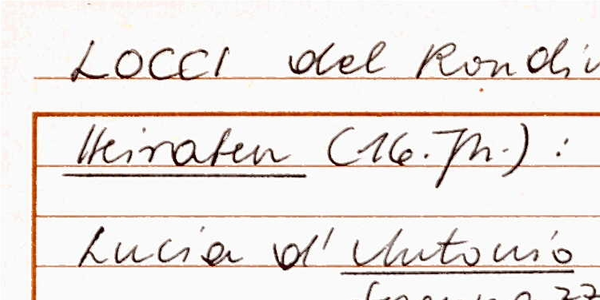 LOCCI del Rondi
Heiraten (16. Jh.) :
Lucia d'Antonio